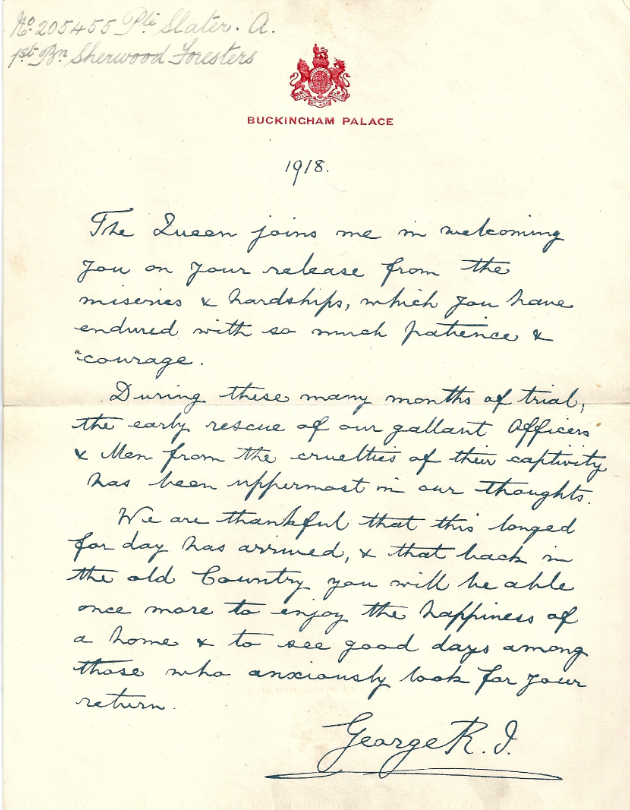 No. 205455 Pte Slater. A.
1st Bn Sherwood Foresters
BUCKINGHAM PALACE
1918.
The Queen joins me in welcoming
you on your release from the
miseries & hardships, which you have
endured with so much patience &
courage.
During these many months of trial,
the early rescue of our gallant Officers
& Men from the cruelties of their captivity
has been uppermost in our thoughts.
We are thankful that this longed
for day has arrived, & that back in
the old Country you will be able
once more to enjoy the happiness of
a home & to see good days among
those who anxiously look for your
return.
George R.I.